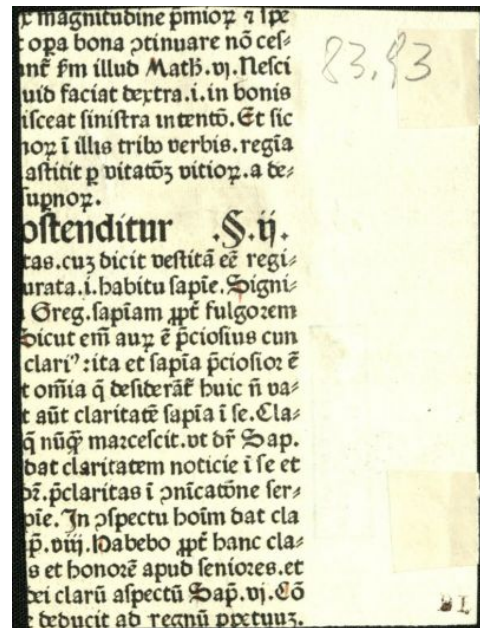 magnitudine p̄mioꝝ ⁊ spe
opa bona ↄtinuare nō ces⸗
ẜm illud Math̄.vj.Nesci
uid faciat dextra.i.in bonis
isceat sinistra intentō.Et sic
noꝝ ī illis tribꝰ verbis.regīa
astitit ꝑ vitatōꝫ vitioꝝ.a de⸗
supnoꝝ.
ostenditur .§.ij.
tas.cuꝫ dicit vestitā eē regi⸗
urata.i.habitu sapīe.Signi⸗
Greg.sapīam ꝓpt̄ fulgorem
Sicut em̄ auꝝ ē p̄ciosius cun
clariꝰ:ita et sapīa p̄ciosior ē
t om̄ia q̄ desiderāt̄ huic n̄ va⸗
t aūt claritatē sapīa ī se.Cla⸗
q̄ nūqꝫ marcescit.vt dr̄ Sap.
dat claritatem noticie ī se et
p̄claritas ī ↄnicatōne ser⸗
pīe.In ↄspectu hoīm dat cla
p̄.viij.Habebo ꝓpt̄ hanc cla⸗
s et honorē apud seniores.et
dei clarū aspectū Sap̄.vj.Cō
deducit ad regnū ppetuuꝫ.
83.83
18